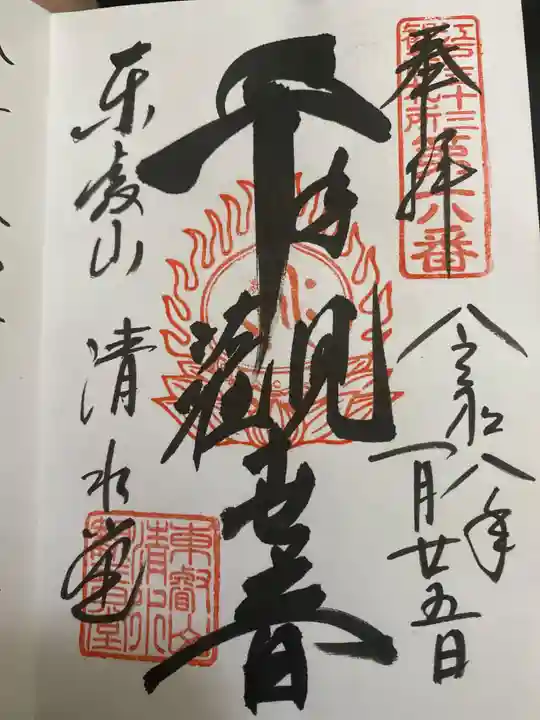 奉拝
江戸三十三
観音札所第六番
令和八年
一月廿五日
千手觀世音
東叡山 清水堂
東叡山
清水
觀音堂